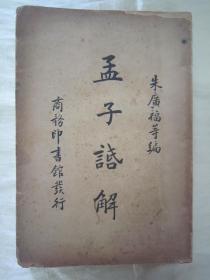 朱廣福等編
孟子話解
商務印書館發行